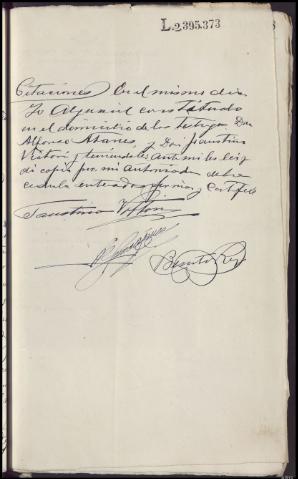 L.2395.373
Citaciones En el mismo dia
Yo Alguacil constituido
en el domicilio de los testigos Don
Alfonso Abanes, y Don Faustino
Viston y teniendoles ante mi les leiy
di copia por mi autorizada de la
cedula enterados firman y Certifico
Faustino Viston
Benito Rey